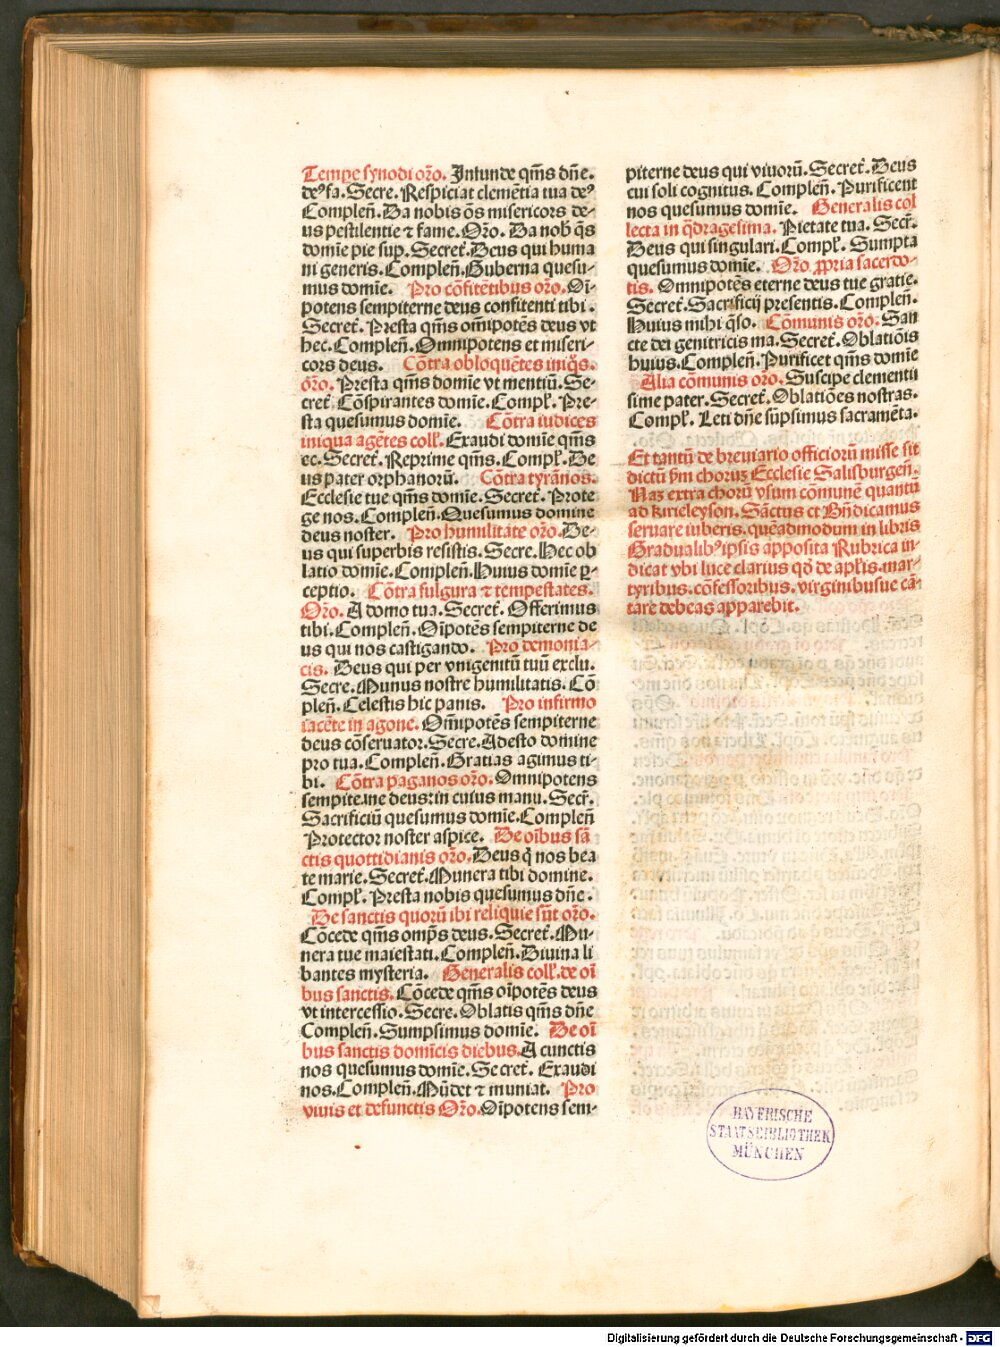 Tempe synodi oro̅. Infunde qm̅s dn̅e.
de⁹ fa. Secre. Respiciat clemētia tua de⁹
Complen̅. Da nobis o̅s misericors de-
us pestilentie ⁊ fame. Oro̅. Da nob q̅s
domīe pie sup. Secret̅. Deus qui huma
ni generis. Complen̅. Guberna quesu-
mus domīe. Pro cōfitētibus oro̅. Oī
potens sempiterne deus confitenti tibi.
Secret̅. Presta qm̅s om̅ipotēs deus vt
hec. Complen̅. Omnipotens et miseri-
cors deus. Cōtra obloquētes iniq̅s.
oro̅. Presta qm̅s domīe vt mentiū. Se-
cret̅ Cōspirantes domīe. Compl̅. Pre-
sta quesumus domīe. Cōtra iudices
iniqua agētes coll̅. Exaudi domīe qm̅s
ec. Secret̅. Reprime qm̅s. Compl̅. De
us pater orphanorū. Cōtra tyrānos.
Ecclesie tue qm̅s domīe. Secret̅. Prote
ge nos. Complen̅. Quesumus domine
deus noster. Pro humilitate oro̅. De-
us qui superbis resistis. Secre. Hec ob
latio domīe. Complen̅. Huius domīe ꝑ-
ceptio. Cōtra fulgura ⁊ tempestates.
Oro̅. A domo tua. Secret̅. Offerimus
tibi. Complen̅. Oīpotēs sempiterne de
us qui nos castigando. Pro demonia-
cis. Deus qui per vnigenitū tuū exclu.
Secre. Munus nostre humilitatis. Cō
plen̅. Celestis hic panis. Pro infirmo
iacēte in agone. Om̅ipotēs sempiterne
deus cōseruator. Secre. Adesto domine
pro tua. Complen̅. Gratias agimus ti-
bi. Cōtra paganos oro̅. Omnipotens
sempiterne deus: in cuius manu. Secr̅.
Sacrificiū quesumus domīe. Complen̅
Protector noster aspice. De oībus sā
ctis quottidianis oro̅. Deus q̅ nos bea
te marie. Secret̅. Munera tibi domine.
Compl̅. Presta nobis quesumus dn̅e.
De sanctis quorū ibi reliquie sūt oro̅.
Cōcede qm̅s omp̅s deus. Secret̅. Mu-
nera tue maiestati. Complen̅. Diuina li
bantes mysteria. Generalis coll̅. de oī
bus sanctis. Cōcede qm̅s oīpotēs deus
vt intercessio. Secre. Oblatis qm̅s dn̅e
Complen̅. Sumpsimus domīe. De oī
bus sanctis domīcis diebus. A cunctis
nos quesumus domīe. Secret̅. Exaudi
nos. Complen̅. Mūdet ⁊ muniat. Pro
viuis et defunctis Oro̅. Oīpotens sem-
piterne deus qui viuorū. Secret̅. Deus
cui soli cognitus. Complen̅. Purificent
nos quesumus domīe. Generalis col
lecta in q̅dragesima. Pietate tua. Secr̅.
Deus qui singulari. Compl̅. Sumpta
quesumus domīe. Oro̅ ꝓpria sacerdo-
tis. Omnipotēs eterne deus tue gratie.
Secret̅. Sacrificij presentis. Complen̅.
Huius mihi q̅so. Cōmunis oro̅. San
cte dei genitricis ma. Secret̅. Oblatiōis
huius. Complen̅. Purificet qm̅s domīe
Alia cōmunis oro̅. Suscipe clementis
sime pater. Secret̅. Oblatiōes nostras.
Compl̅. Leti dn̅e sūpsimus sacramēta.
Et tantū de breuiario officiorū misse sit
dictū ẜm chorum Ecclesie Salisburgen̅.
Nam extra chorū vsum cōmunē quantū
ad kirieleyson. Sāctus et Bn̅dicamus
seruare iuberis. quēadmodum in libris
Gradualib⁹ ipsis apposita Rubrica in-
dicat vbi luce clarius qd̅ de apl̅is. mar-
tyribus. cōfessoribus. virginibusue cā-
tare debeas apparebit.
BAYERISCHE
STAATSBIBLIOTHEK
MÜNCHEN
Digitalisierung gefördert durch die Deutsche Forschungsgemeinschaft - DFG